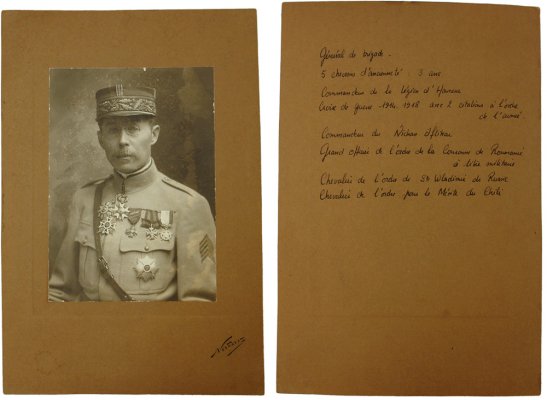 Général de brigade.
5 chevrons d'ancienneté : 3 ans
Commandeur de la Légion d'Honneur
Croix de guerre 1914. 1918 avec 2 citations à l'ordre
de l'armée
Commandeur du Nichan Iftikar
Grand officier de l'ordre de la Couronne de Roumanie
à titre militaire
Chevalier de l'ordre de St Wladimir de Russie
Chevalier de l'ordre pour le Mérite du Chili